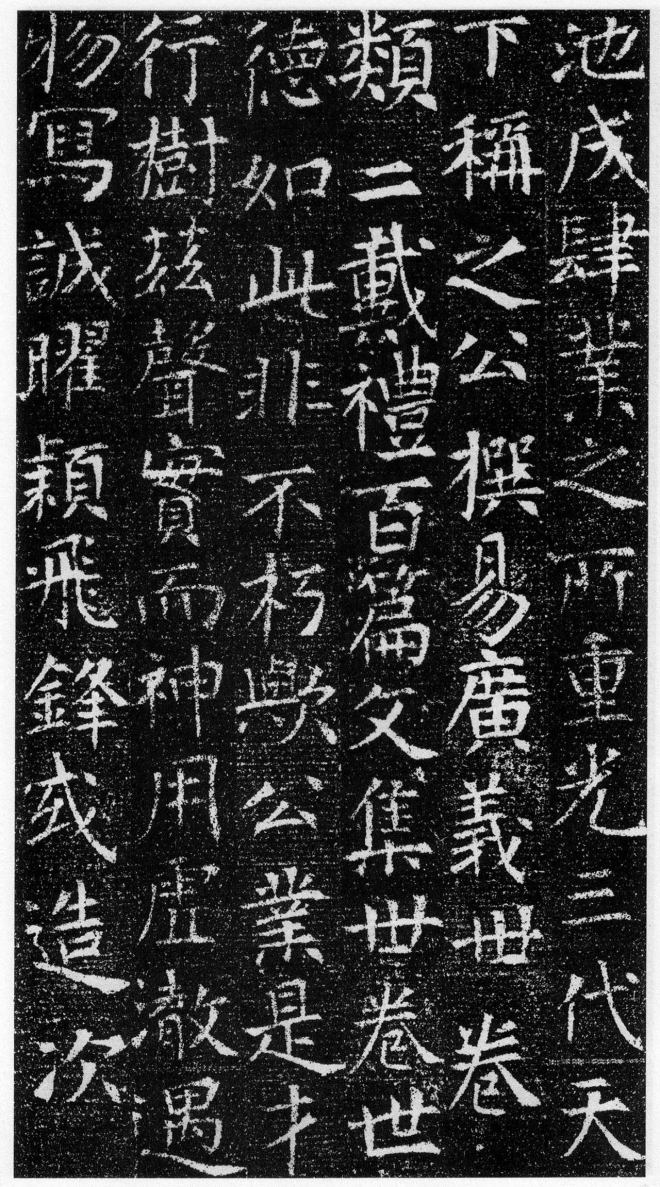 池成肆業之所重光三代天
下稱之公撰易廣義卌卷
類二戴禮百篇文集丗卷世
德如此非不朽歟公業是才
行樹茲聲實而神用虛澈遇
物寫誠曜穎飛鋒或造次